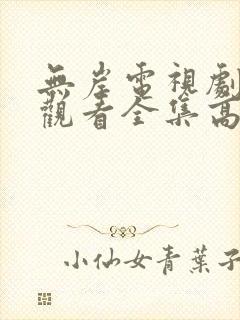 無岸電視劇
觀看全集高
小仙女青葉子